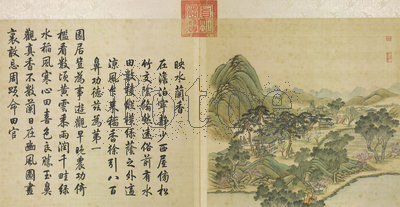 映水蘭香
在澹泊寧靜少西屋傍松
竹交陰翛然遠俗前有水
田數稜縱橫綠蔭之外適
涼風乍來稻香徐引八百
鼻功德茲為第一
園居豈為事遊觀早晚農功倚
檻看數頃黃雲黍雨潤千畦綠
水稻風寒心田喜色良勝玉鼻
觀真香不數蘭日在豳風圖畫
裏敢忘周頌命田官